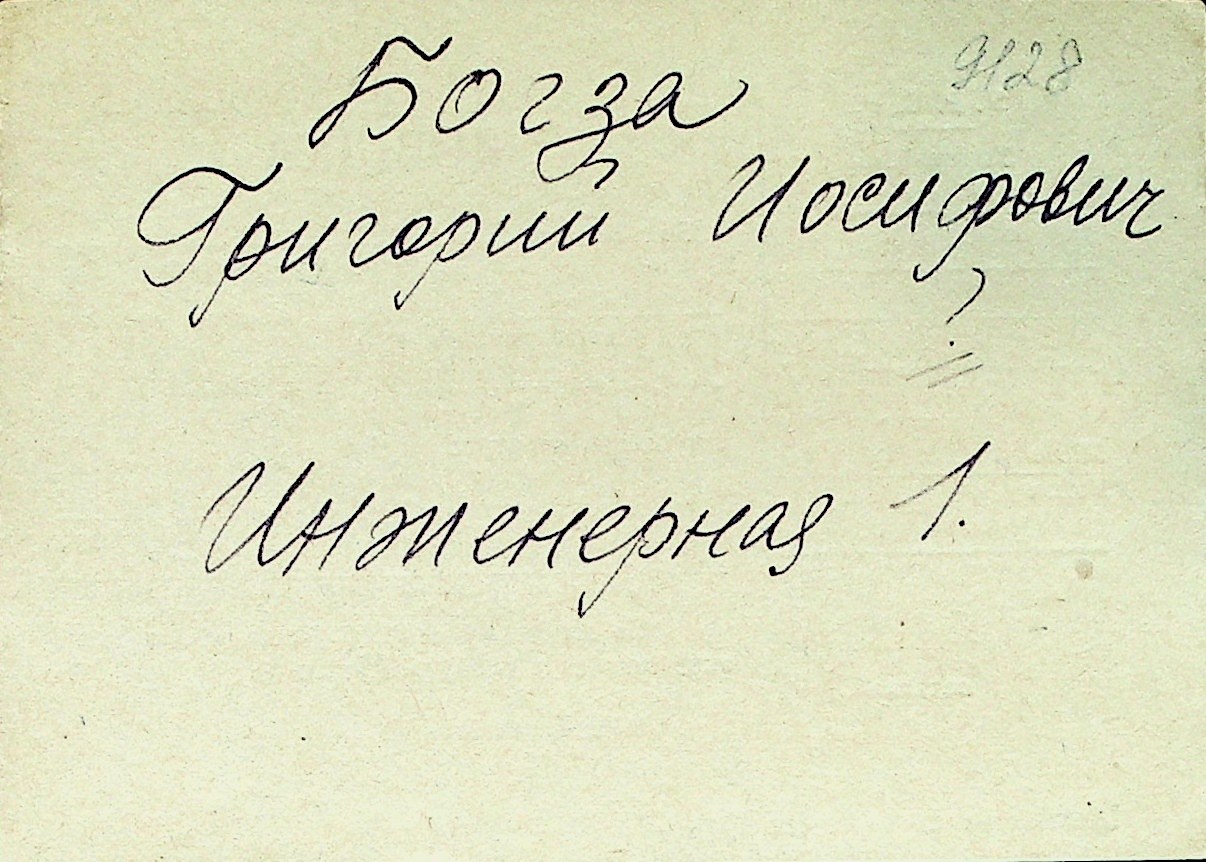 9128
Богза
Григорий Иосифович
?
Инженерная 1.